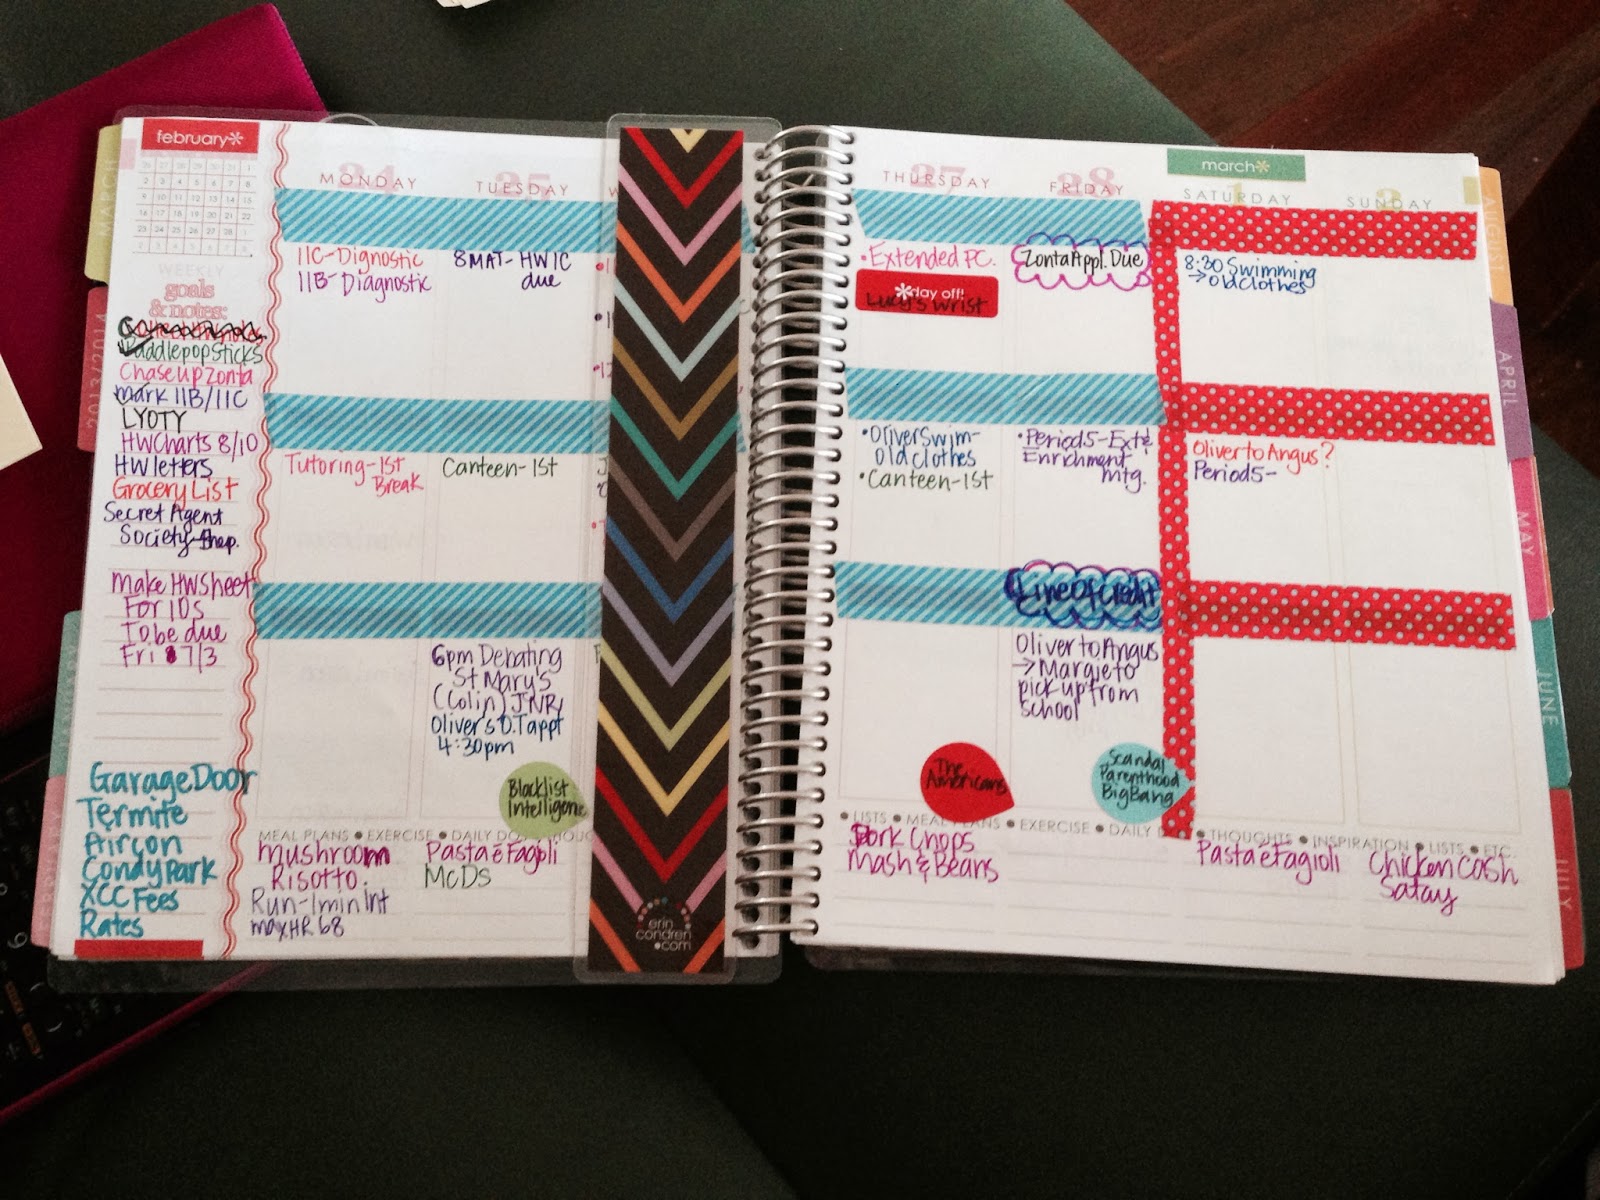 february*
MONDAY
TUESDAY
25
WEEKLY
goals
& notes:
Paddlepop Sticks
Chase up Zonta
Mark 11B/11C
LYOTY
HW Charts 8/10
HW letters
Grocery List
Secret Agent
Society
Make HW Sheet
For 10s
To be due
Fri 7/3
Garage Door
Termite
Aircon
Condy Park
XCC Fees
Rates
11C-Dignostic
11B-Diagnostic
8MAT-HW1C
due
Tutoring-1st
Break
Canteen-1st
6pm Debating
St Mary's
(Colin) JNR
Oliver's O.T appt
4:30pm
Blacklist
Intelligence
MEAL PLANS • EXERCISE • DAILY DO
Mushroom
Risotto.
Run-1min Int
max HR 68
Pasta e Fagioli
McDs
erin
condren
.com
27
THURSDAY
28
FRIDAY
march*
1
SATURDAY
2
SUNDAY
•Extended PC.
*day off!
Lucy's Wrist
Zonta Appl. Due
8:30 Swimming
→old clothes
•Oliver Swim-
old clothes
•Canteen-1st
•Period 5-Ext &
Enrichment
mtg.
Oliver to Angus?
Period 5-
Line Of Credit
Oliver to Angus
→Margie to
pick up from
school
The
Americans
Scandal
Parenthood
Big Bang
• LISTS • MEAL PLANS • EXERCISE • DAILY DO • THOUGHTS • INSPIRATION • LISTS • ETC.
Pork Chops
Mash & Beans
Pasta e Fagioli
Chicken Cash
Satay
MARCH
2013/2014
JANUARY
AUGUST
APRIL
MAY
JUNE
JULY